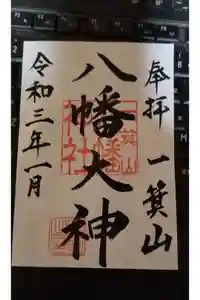 奉拝 一箕山
八幡大神
令和三年一月